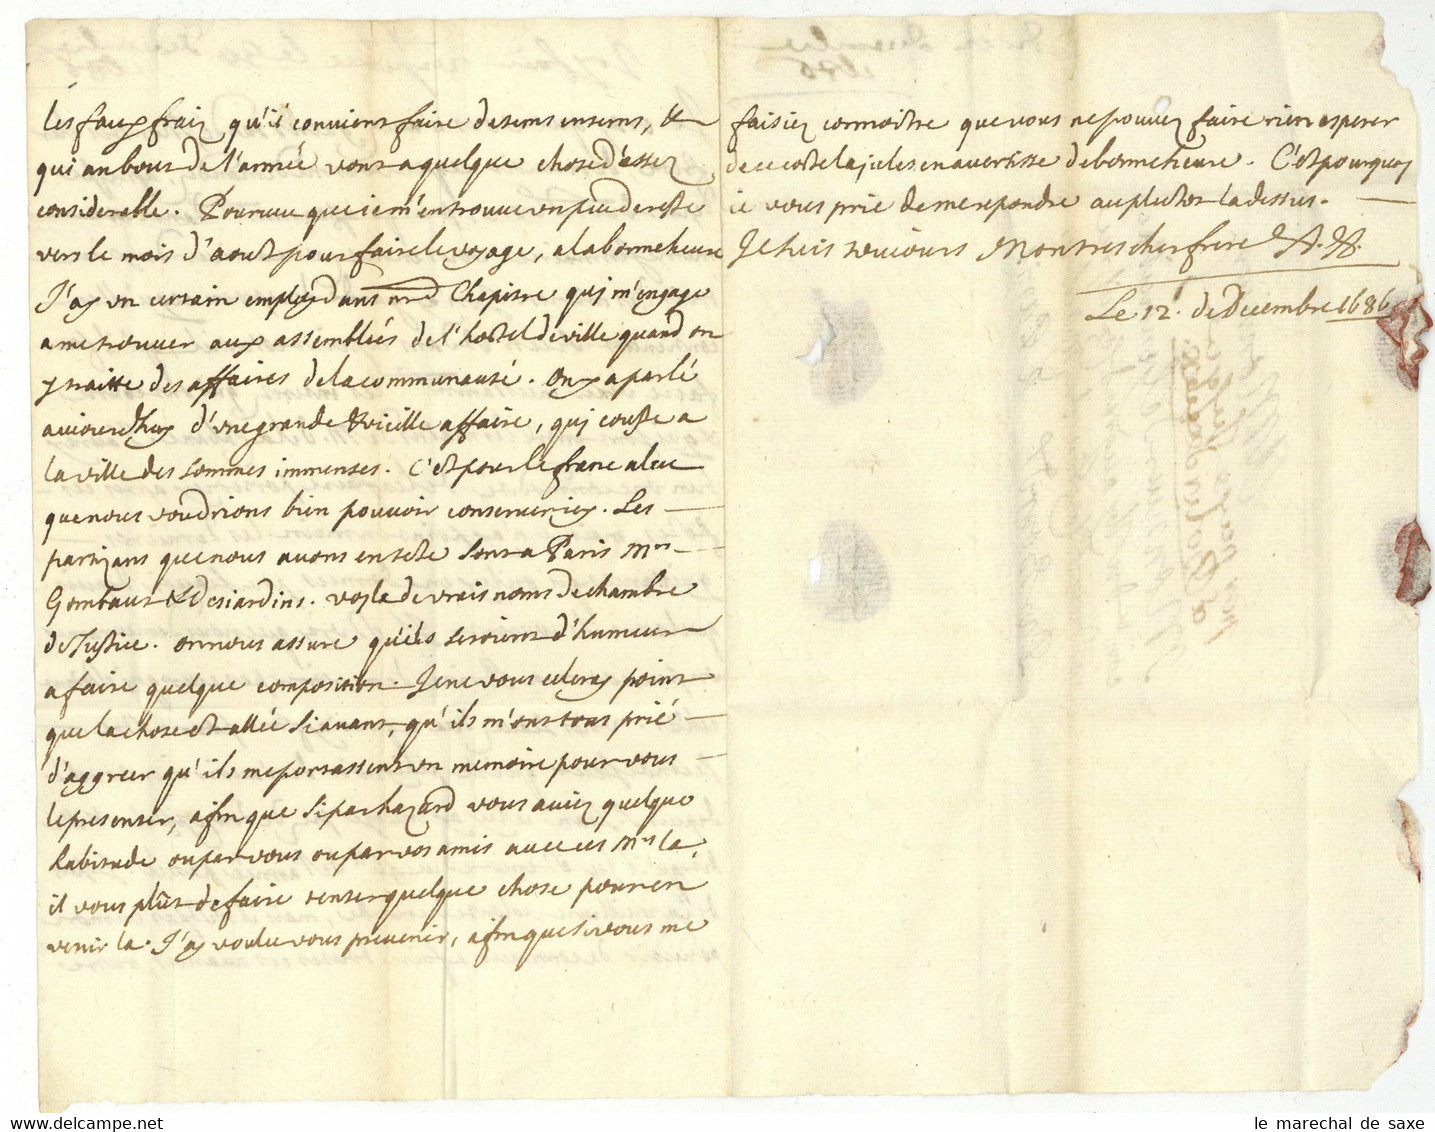 les faux fraiz qu'il convient faire de tems en tems, &
qui au bout de l'année vont a quelque chose d'assez
considerable. Pourveu que je m'en trouve un peu de reste
vers le mois d'aout pour faire le voyage, a la bonne heure
J'ay un certain employ dans nrē Chapitre qui m'engage
a me trouver aux assemblées de l'hostel de ville quand on
y traitte des affaires de la communauté. On y a parlé
aujourdhuy d'une grande & vieille affaire, qui couste a
la ville des sommes immenses. C'est pour le franc aleu
que nous voudrions bien pouvoir conserver icy. Les
partizans que nous avons en teste sont a Paris Mrs
Gombaut & Desjardins. voyla de vrais noms de chambre
de Justice. on nous assure qu'ils seroient d'humeur
a faire quelque composition. Je ne vous celeray point
que la chose est allée si avant, qu'ils m'ont tous prié
d'aggreer qu'ils me portassent un memoire pour vous
le presenter, afin que si par hazard vous aviez quelque
habitude ou par vous ou par vos amis avec ces Mrs la,
il vous plût de faire tenter quelque chose pour en
venir la. J'ay voulu vous prevenir, afin que si vous me
faisiez connoistre que vous ne pouvez faire rien esperer
de ce costé la je les en avertisse de bonne heure. C'est pourquoy
je vous prie de me repondre au plustot la dessus.
Je suis toujours Mon tres cher frere
Le 12. de Decembre 1686
le marechal de saxe